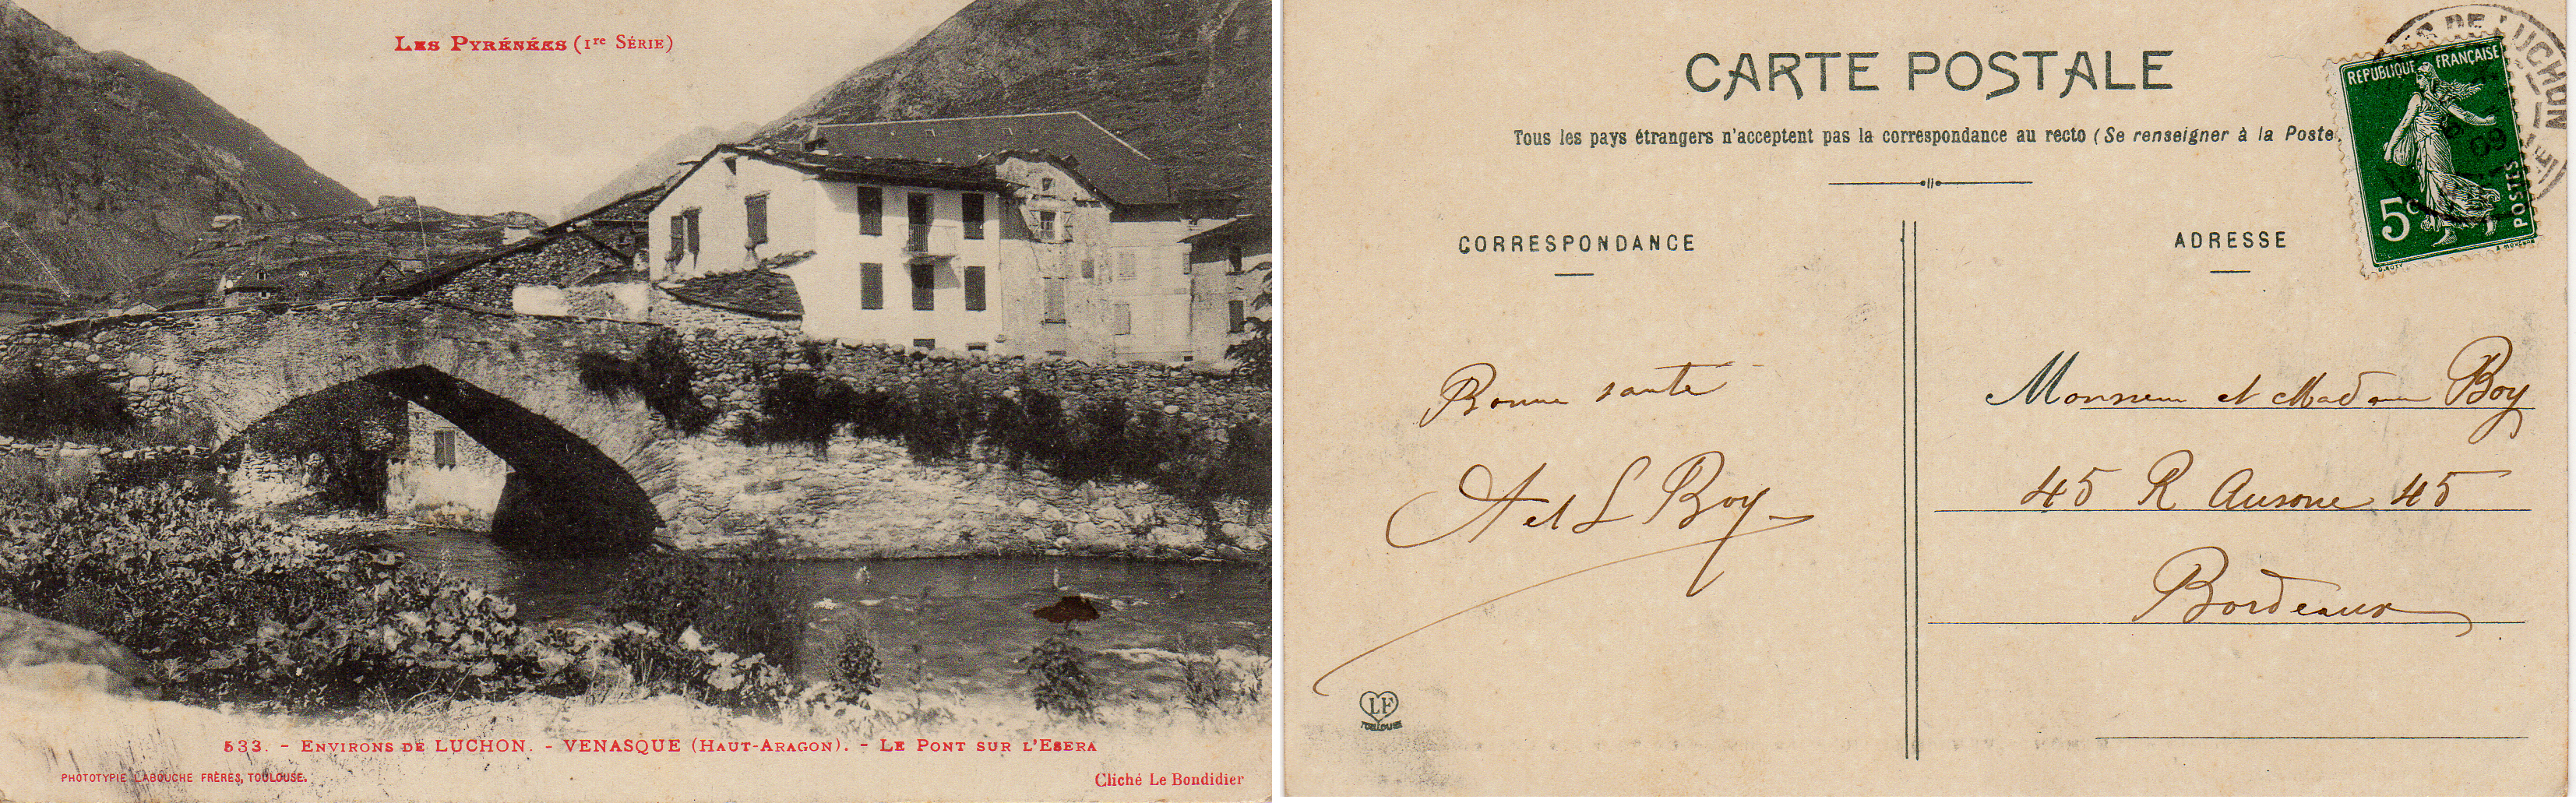 LES PYRÉNÉES (1re SÉRIE)
533. - ENVIRONS DE LUCHON. - VENASQUE (HAUT-ARAGON). - LE PONT SUR L'ESERA
PHOTOTYPIE LABOUCHE FRÈRES, TOULOUSE.
Cliché Le Bondidier
CARTE POSTALE
Tous les pays étrangers n'acceptent pas la correspondance au recto (Se renseigner à la Poste
CORRESPONDANCE
ADRESSE
REPUBLIQUE FRANÇAISE
5c
POSTES
DE LUCHON
09
Bonne santé
A et L Boy
Monsieur et Madame Boy
45 R Ausone 45
Bordeaux
LF
TOULOUSE